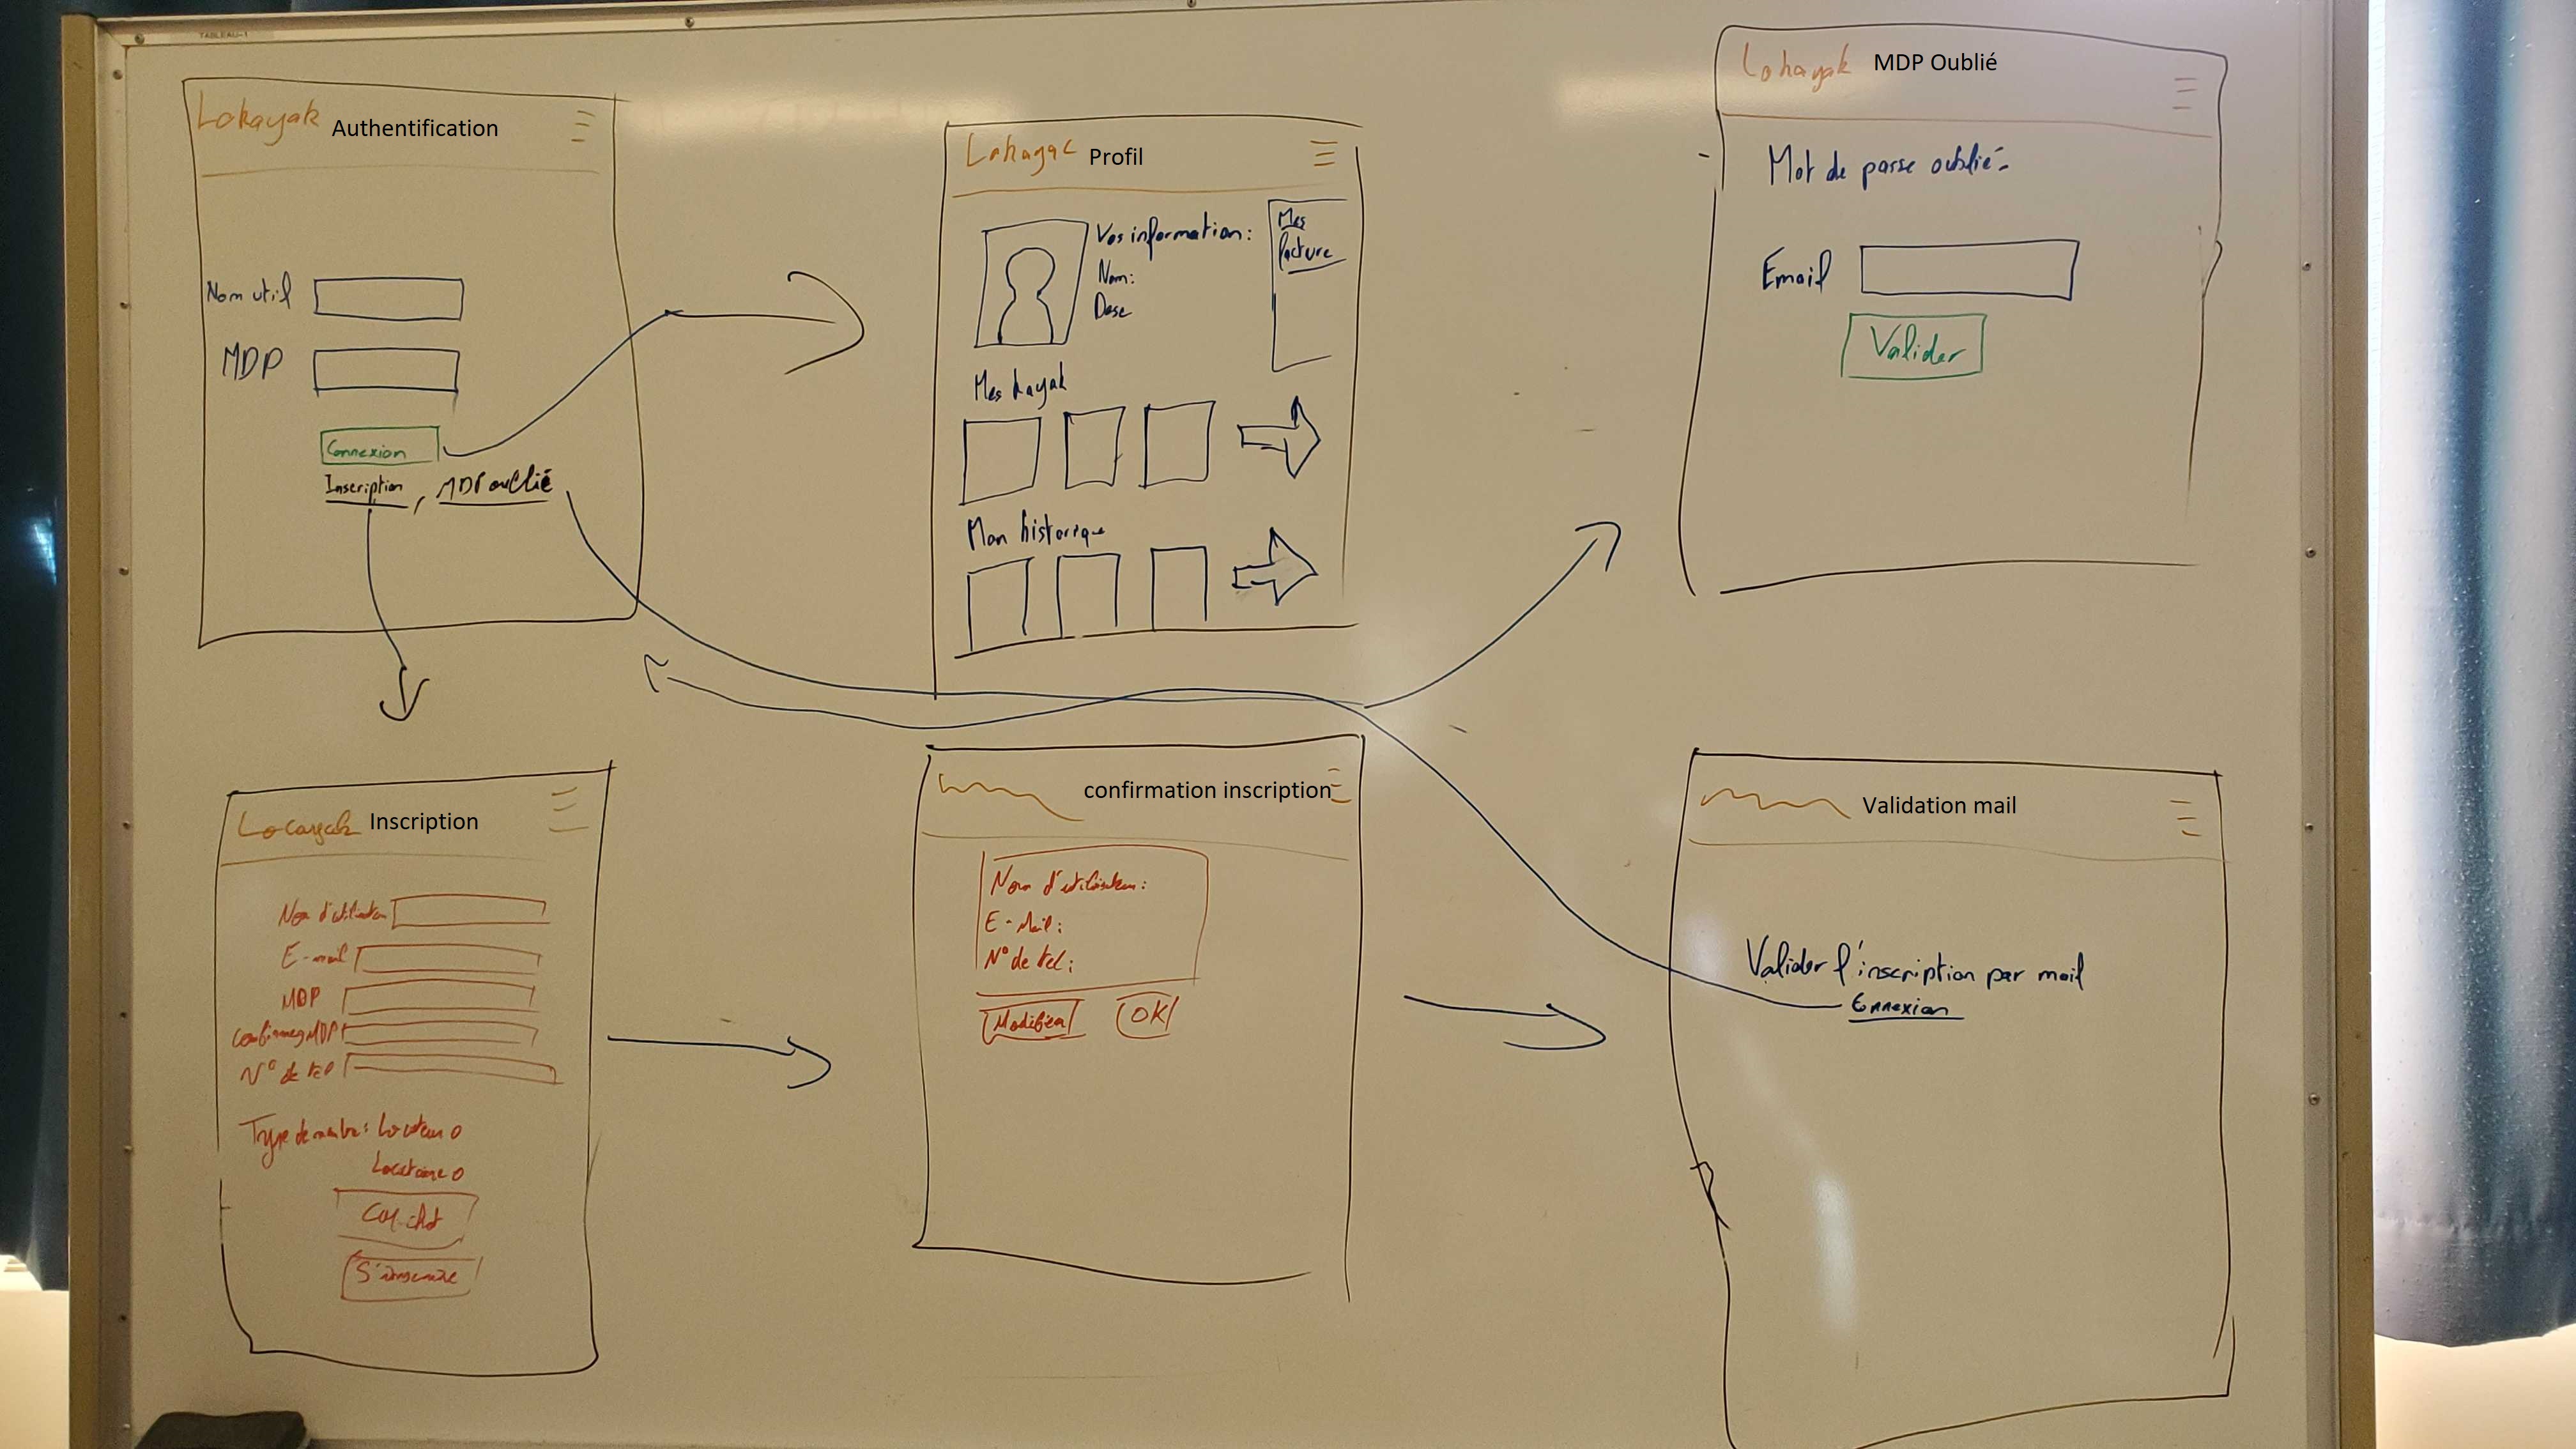 TABLEAU-1
Lokayak Authentification
Nom util
MDP
Connexion
Inscription, MDP oublié
Lokayac Profil
Vos information:
Nom:
Desc
Mes
facture
Mes kayak
Mon historique
Lokayak MDP Oublié
Mot de passe oublié
Email
Valider
Locayak Inscription
Nom d'utilisateur
E-mail
MDP
confirmez MDP
N° de tel
Type de membre: Locateur
Locataire
S'inscrire
confirmation inscription
Nom d'utilisateur:
E-Mail:
N° de tel:
Modifier OK
Validation mail
Valider l'inscription par mail
Connexion